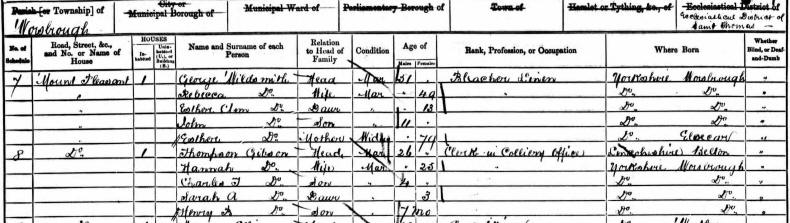 Parish [or Township] of
City or
Municipal Borough of
Municipal Ward of
Parliamentary Borough of
Town of
Hamlet or Tything, &c., of
Ecclesiastical District of
Worsbrough
Ecclesiastical District of
Saint Thomas
No. of Schedule
Road, Street, &c., and No. or Name of House
HOUSES
Inhabited
Uninhabited (U.), or Building (B.)
Name and Surname of each Person
Relation to Head of Family
Condition
Age of
Males
Females
Rank, Profession, or Occupation
Where Born
Whether Blind, or Deaf-and-Dumb
7 Mount Pleasant 1 George Wildsmith Head Mar 51 Bleacher Linen Yorkshire Worsbrough
" Rebecca Do Wife Mar 49 Do Do
" Esther Do Daur 13 Do Do
" John Do Son 11 Do Do
" Esther Do Mother Widow 79 Do Elsecar
8 Do 1 Thompson Gibson Head Mar 26 Clerk in Colliery Office Lincolnshire
Hannah Do Wife Mar 25 Yorkshire Worsbrough
Charles T Do Son 4 Do Do
Sarah A Do Daur 3 Do Do
Henry Do Son 7 mo Do Do